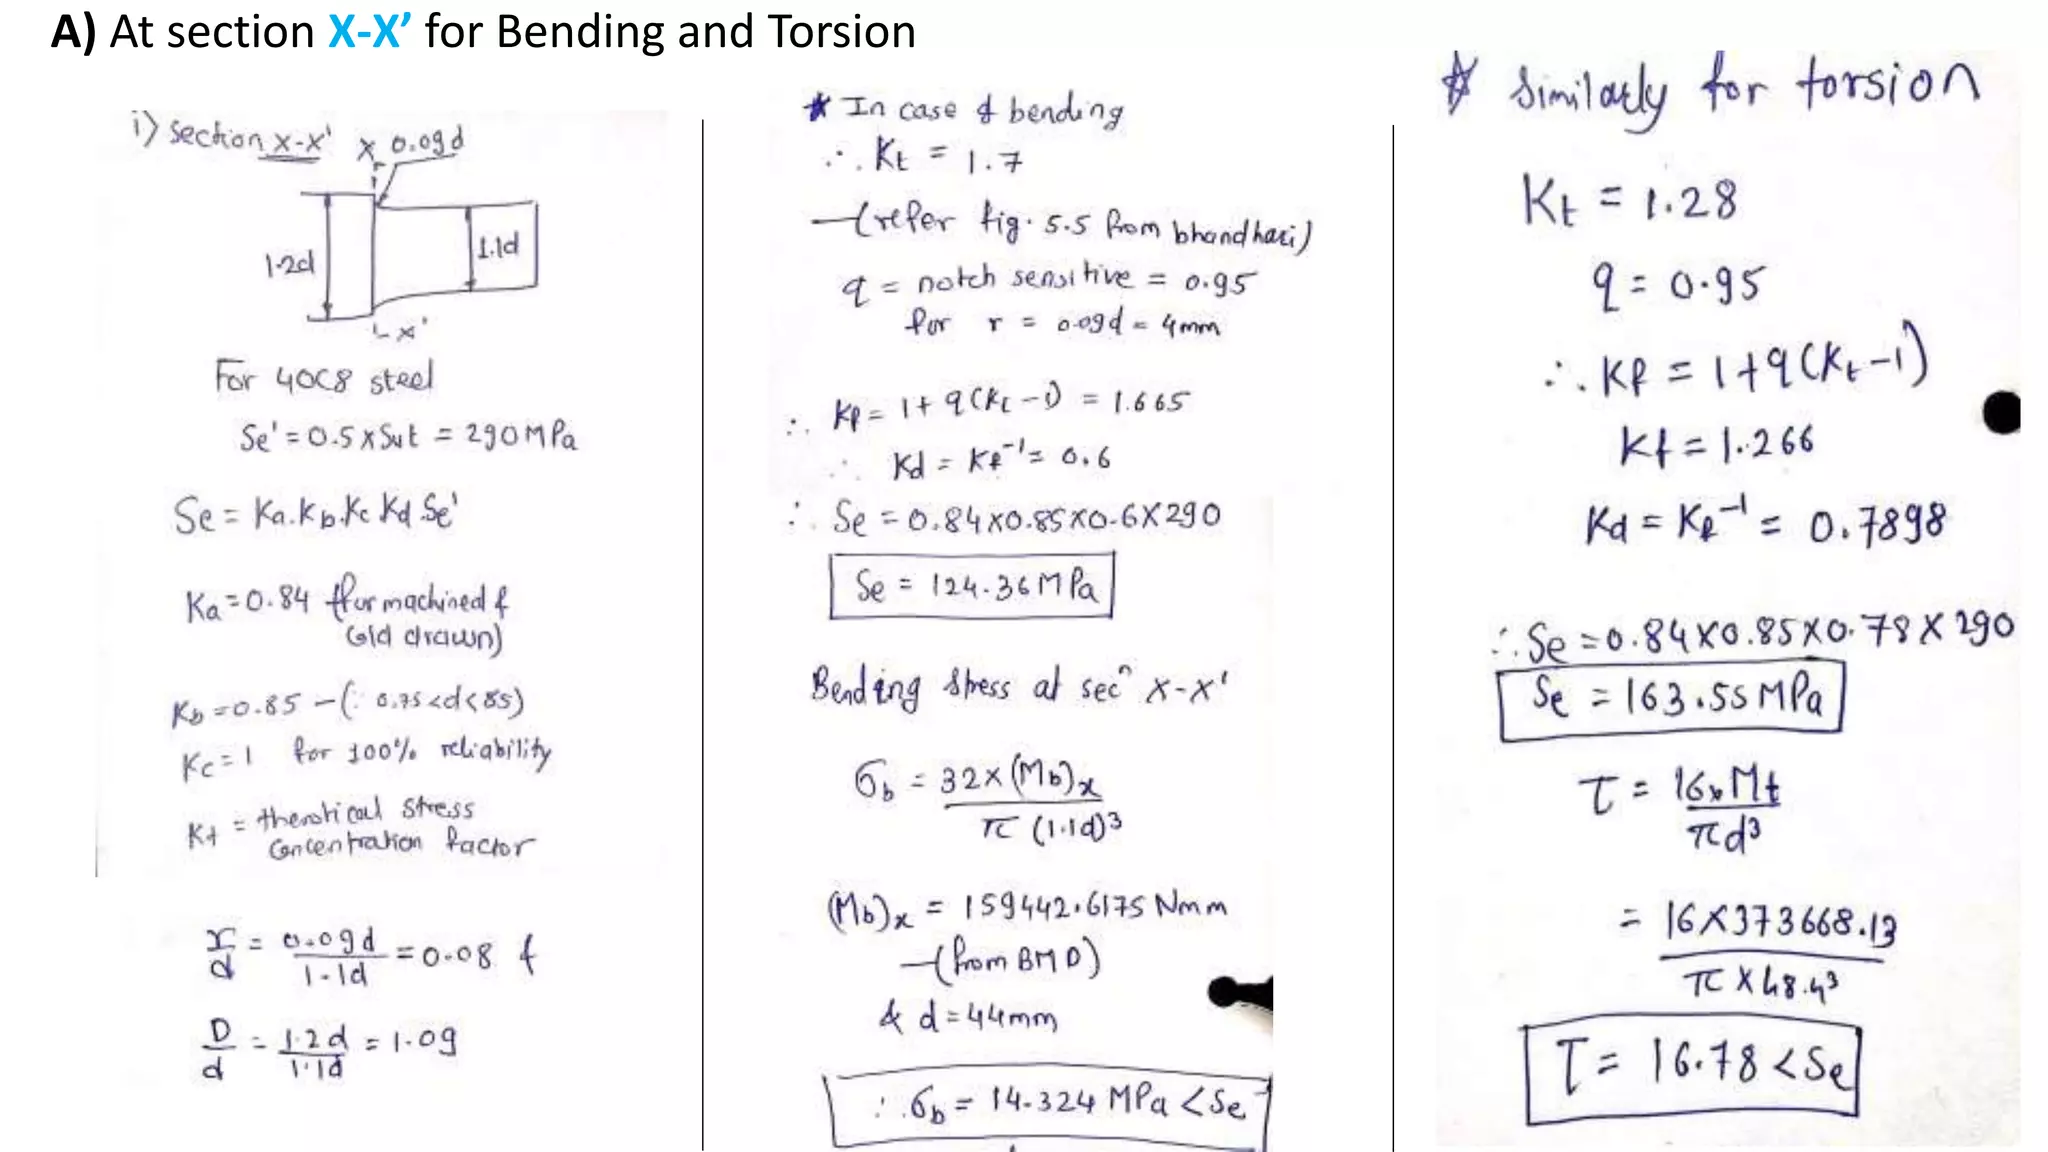 A) At section X-X’ for Bending and Torsion
i) section X-X'
X 0.09d
1.2d
1.1d
X'
For 40C8 steel
Se' = 0.5 x Sut = 290 MPa
Se = Ka.Kb.Kc.Kd.Se'
Ka = 0.84 (for machined &
Cold drawn)
Kb = 0.85 - (∵ 0.75<d<85)
Kc = 1 for 100% reliability
Kt = therotical stress
Concentration factor
r/d = 0.09d/1.1d = 0.08 &
D/d = 1.2d/1.1d = 1.09
* In case of bending
∴ Kt = 1.7
—(refer fig. 5.5 from bhandhari)
q = notch sensitive = 0.95
for r = 0.09d = 4mm
∴ Kf = 1 + q(Kt - 1) = 1.665
∴ Kd = Kf⁻¹ = 0.6
∴ Se = 0.84x0.85x0.6x290
Se = 124.36 MPa
Bending stress at secⁿ X-X'
σb = 32 x (Mb)x / π (1.1d)³
(Mb)x = 159442.6175 Nmm
—(from BMD)
& d = 44mm
∴ σb = 14.324 MPa < Se
* Similarly for torsion
Kt = 1.28
q = 0.95
∴ Kf = 1 + q(Kt - 1)
Kf = 1.266
Kd = Kf⁻¹ = 0.7898
∴ Se = 0.84x0.85x0.78x290
Se = 163.55 MPa
τ = 16 x Mt / πd³
= 16x373668.13 / π x 48.4³
τ = 16.78 < Se